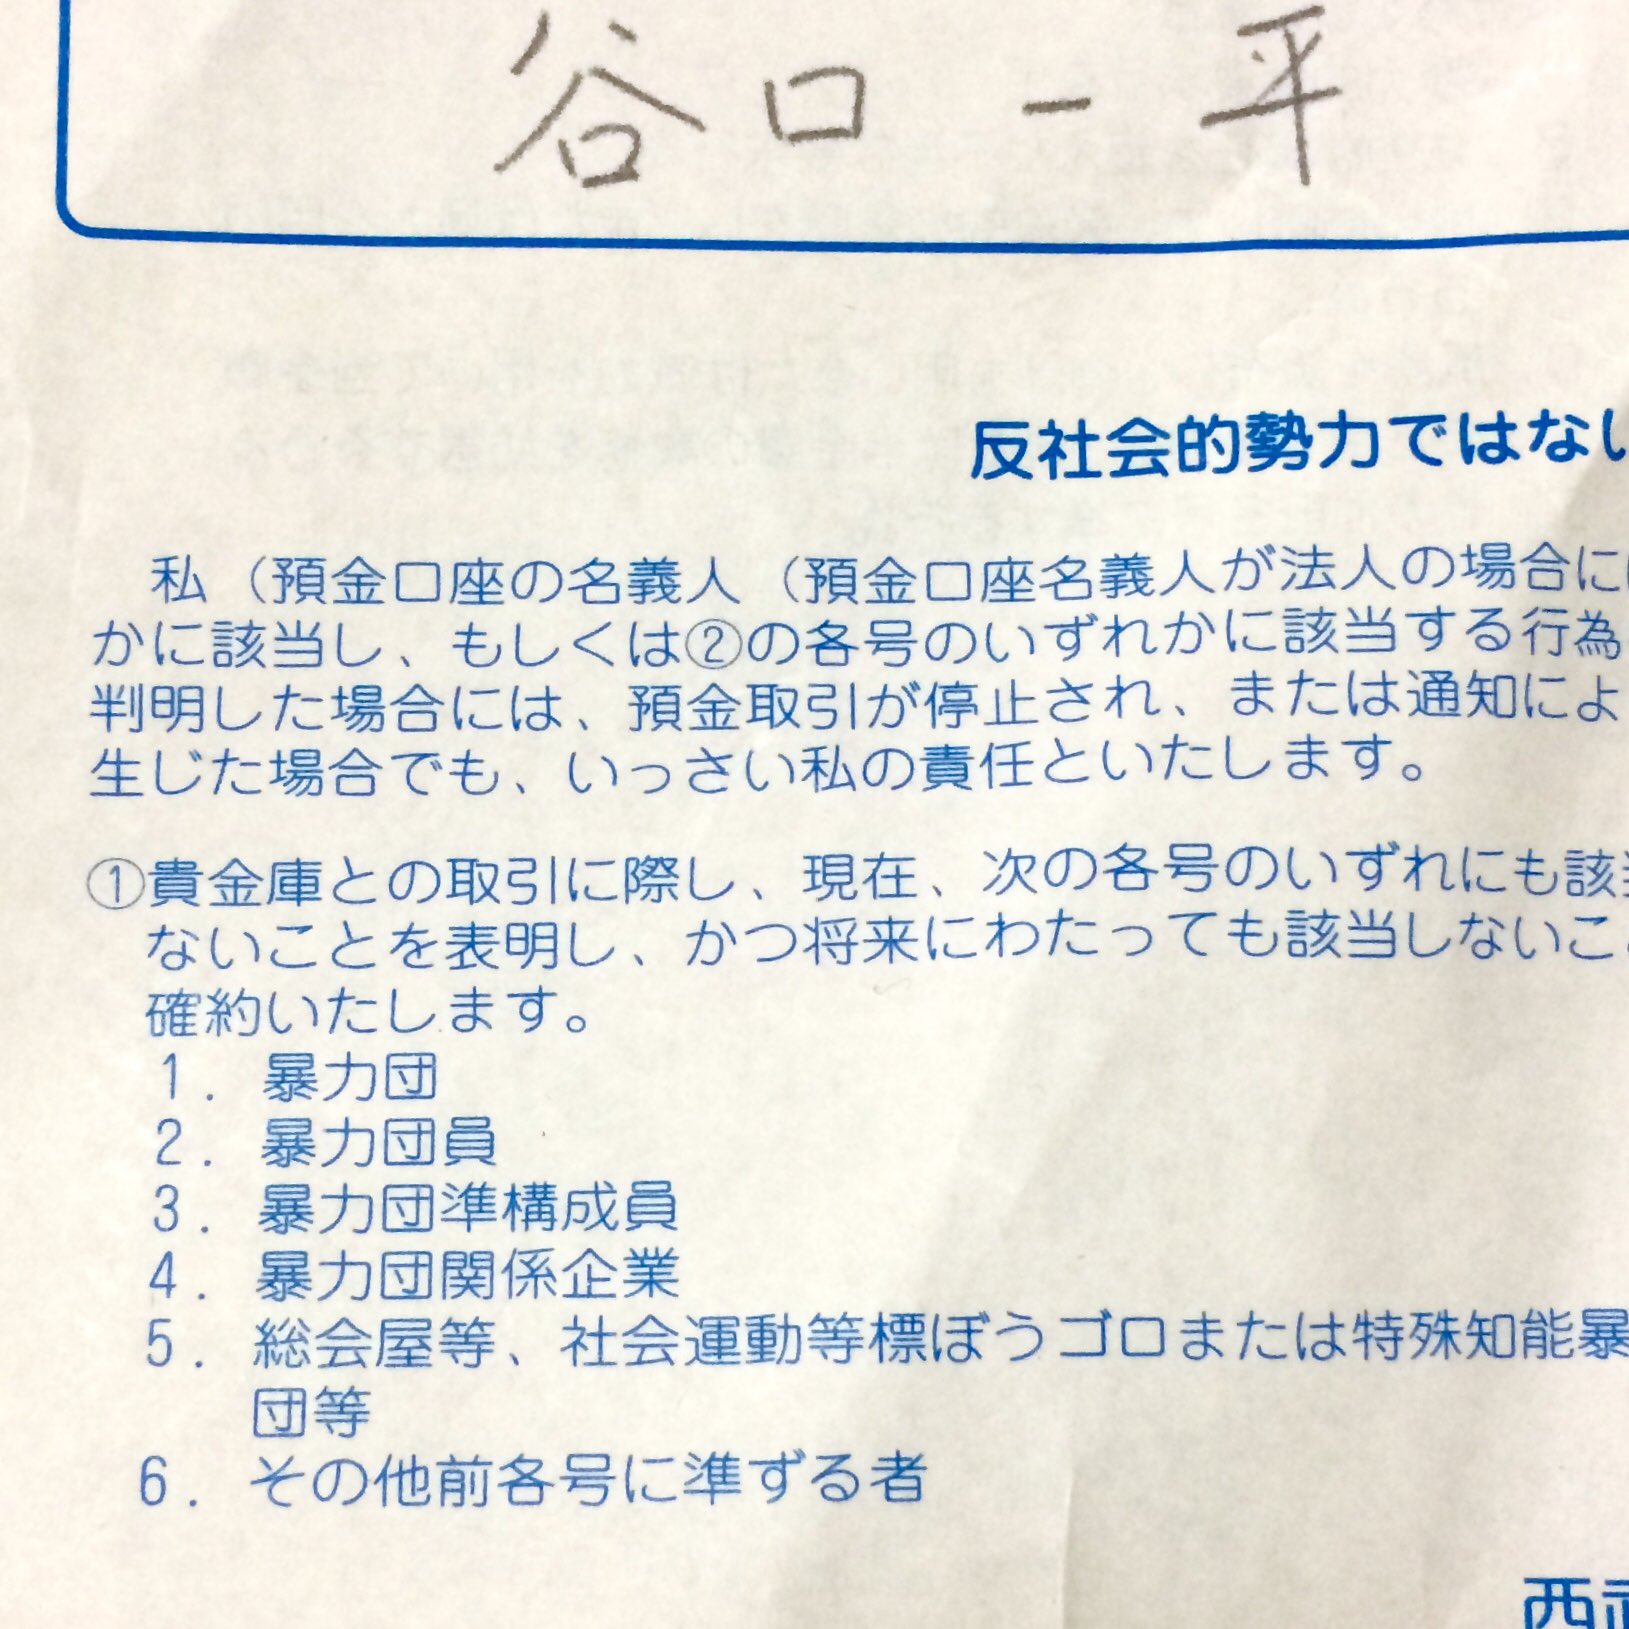 谷口一平
反社会的勢力ではない
私（預金口座の名義人（預金口座名義人が法人の場合には
かに該当し、もしくは②の各号のいずれかに該当する行為
判明した場合には、預金取引が停止され、または通知によ
生じた場合でも、いっさい私の責任といたします。
①貴金庫との取引に際し、現在、次の各号のいずれにも該当
ないことを表明し、かつ将来にわたっても該当しないこと
確約いたします。
1．暴力団
2．暴力団員
3．暴力団準構成員
4．暴力団関係企業
5．総会屋等、社会運動等標ぼうゴロまたは特殊知能暴
団等
6．その他前各号に準ずる者
西武